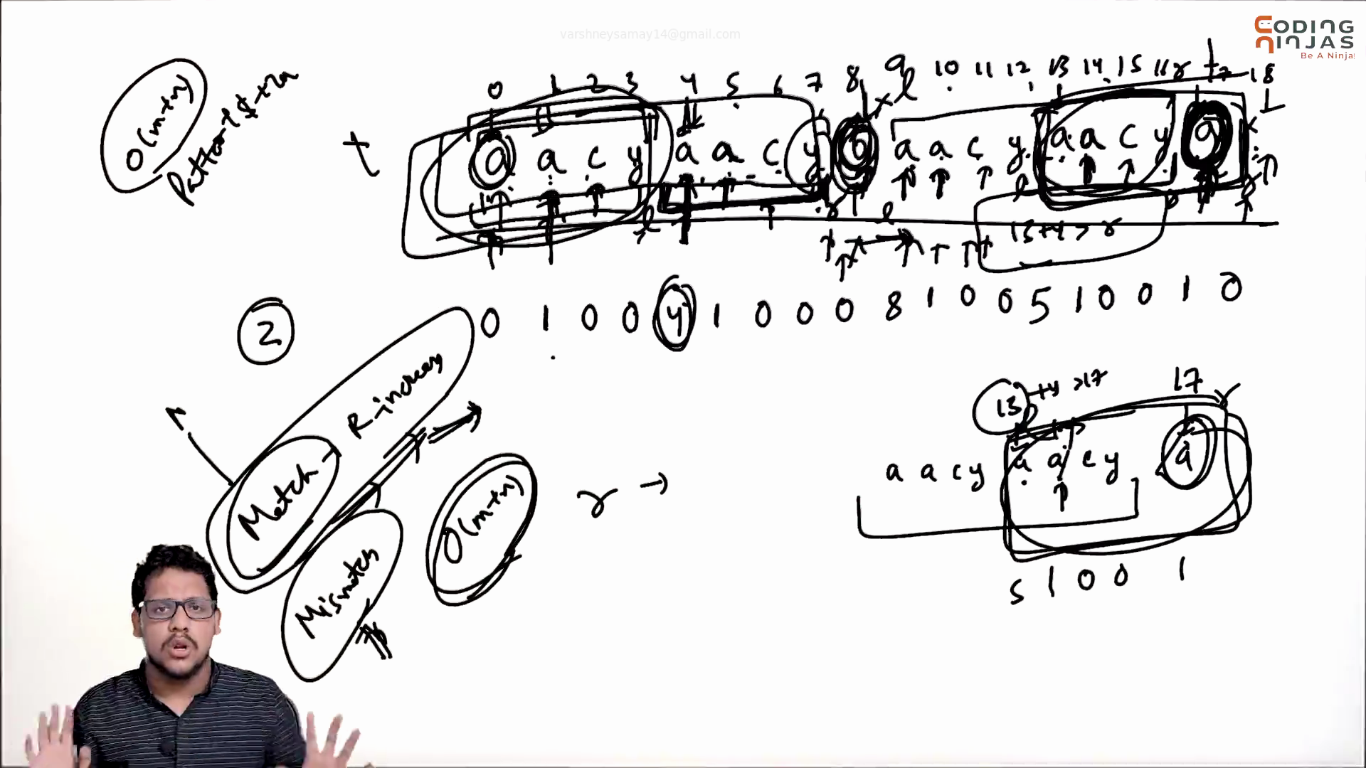 varshneysamay14@gmail.com
CODING
NINJAS
Be A Ninja!
O(m+n)
0 1 2 3 4 5 6 7 8 9 10 11 12 13 14 15 16 17 18
t a a c y a a c y b a a c y a a c y a x
l
15+4 > r
0 1 0 0 4 1 0 0 0 8 1 0 0 5 1 0 0 1 0
2
Match → R-increas
Mismatch
O(m+n)
r →
13 +4 >17
17
r
a a c y a a c y a
5 1 0 0 1